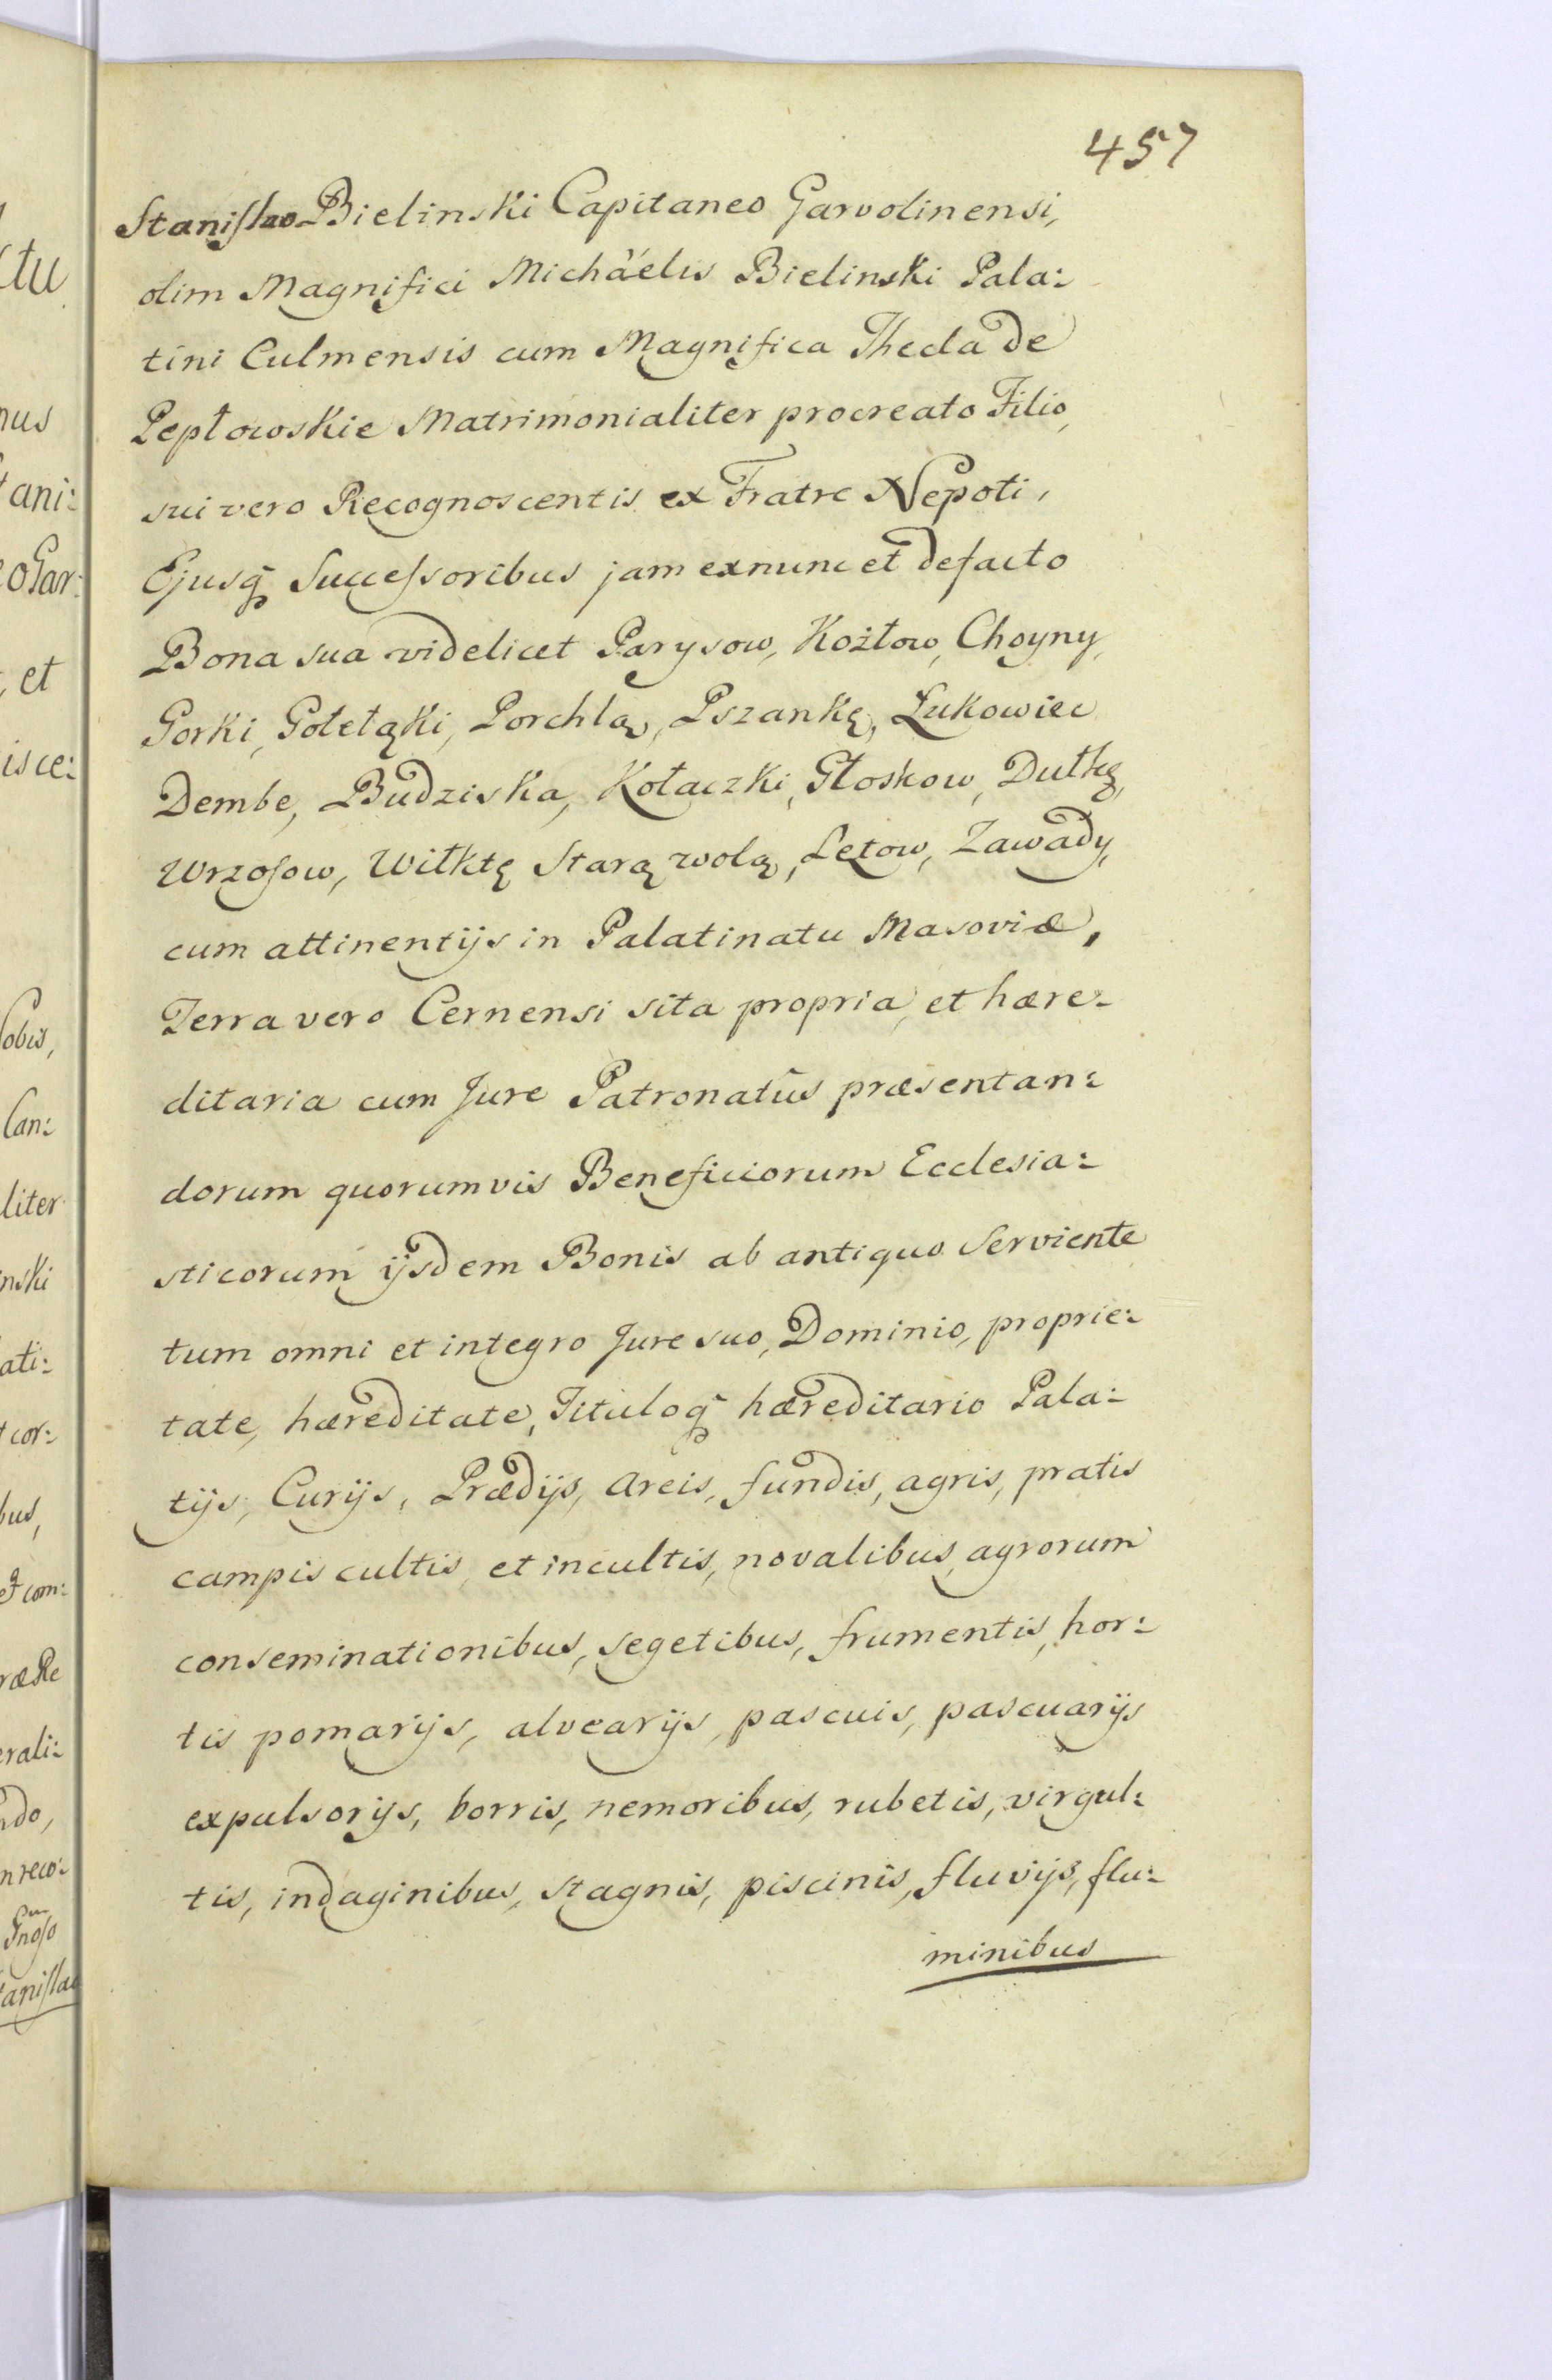 457
Stanislao Bielinski Capitaneo Garvolinensi,
olim Magnifici Michaelis Bielinski Pala:
tini Culmensis cum Magnifica Thecla de
Pepłowskie Matrimonialiter procreato Filio,
sui vero Recognoscentis ex Fratre Nepoti,
Ejusq Successoribus jam exnunc et defacto
Bona sua videlicet Parysow, Kozłow, Choyny,
Gorki, Gołełąki, Porchlą, Pszankę, Łukowiec
Dembe, Budziska, Kołaczki, Głoskow, Dułkę,
Wrzosow, Wiłktę Starą wolą, Łętow, Zawady,
cum attinentijs in Palatinatu Masoviæ,
Terra vero Cernensi sita propria, et hære:
ditaria cum Jure Patronatûs præsentan:
dorum quorumvis Beneficiorum Ecclesia:
sticorum ijsdem Bonis ab antiquo Serviente
tum omni et integro Jure suo, Dominio, proprie:
tate, hæreditate, Tituloq hæreditario Pala:
tijs, Curijs, Prædijs, areis, fundis, agris, pratis
campis cultis, et incultis, novalibus, agrorum
conseminationibus, segetibus, frumentis, hor:
tis pomarijs, alvearijs, pascuis, pascuarijs
expulsorijs, borris, nemoribus, rubetis, virgul:
tis, indaginibus, stagnis, piscinis, fluvijs, flu:
minibus